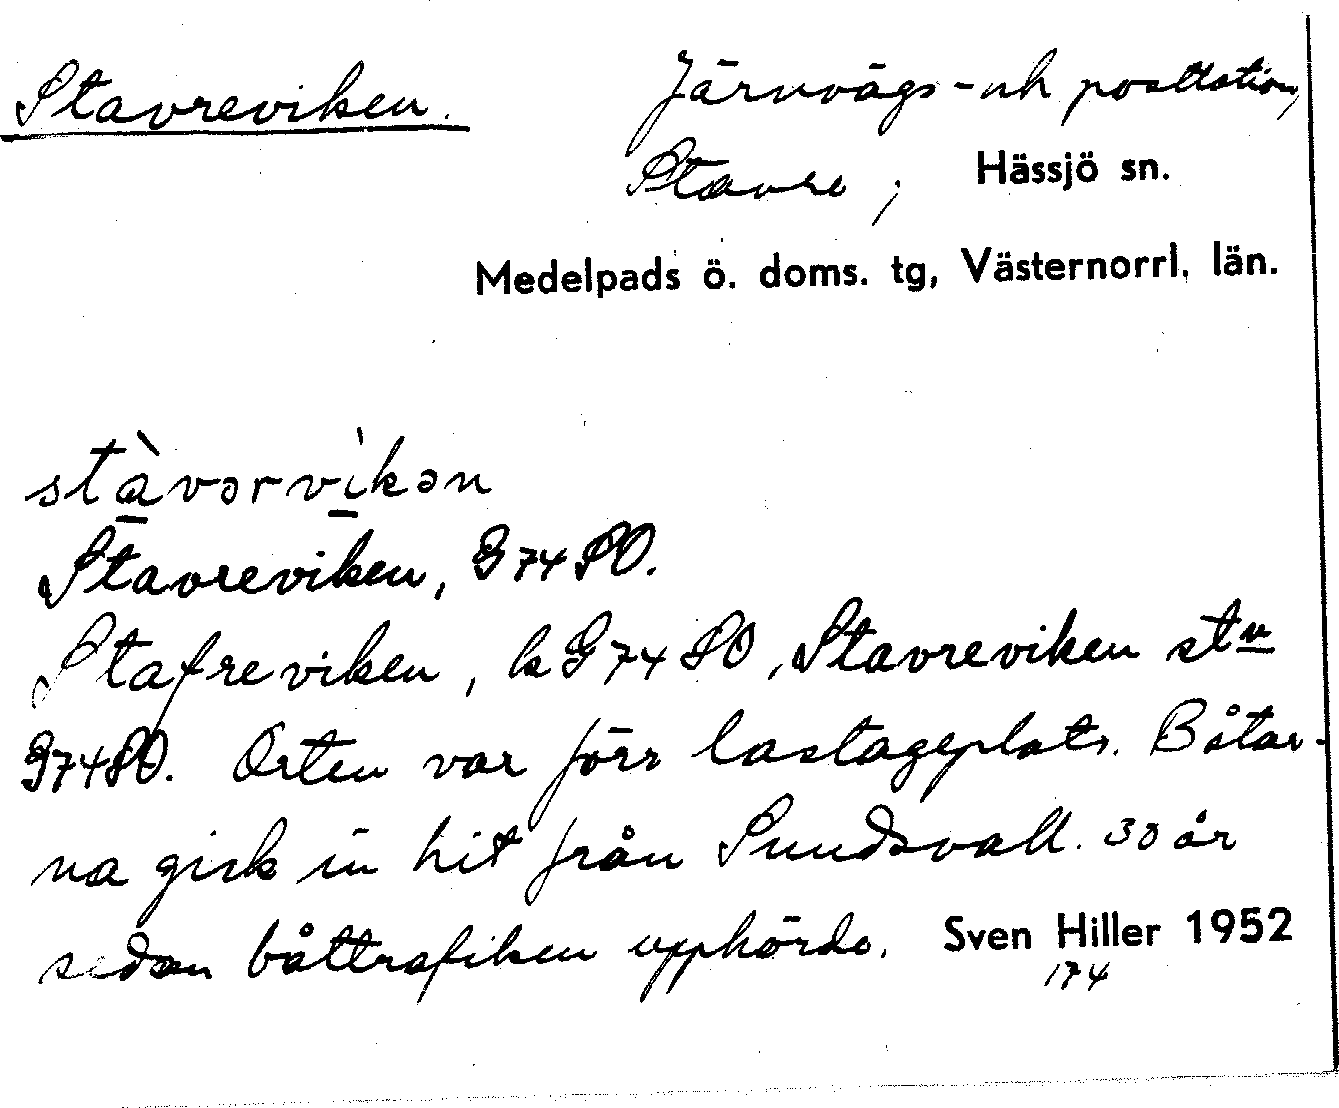 Stavreviken.
Järnvägs- och poststation,
Stavre, Hässjö sn.
Medelpads ö. doms. tg, Västernorrl. län.
stàvərvìkən
Stavreviken, G 74 SO.
Stafreviken, k G 74 SO, Stavreviken stn
G 74 SO. Orten var förr lastageplats. Båtar-
na gick in hit från Sundsvall. 30 år
sedan båttrafiken upphörde. Sven Hiller 1952
174